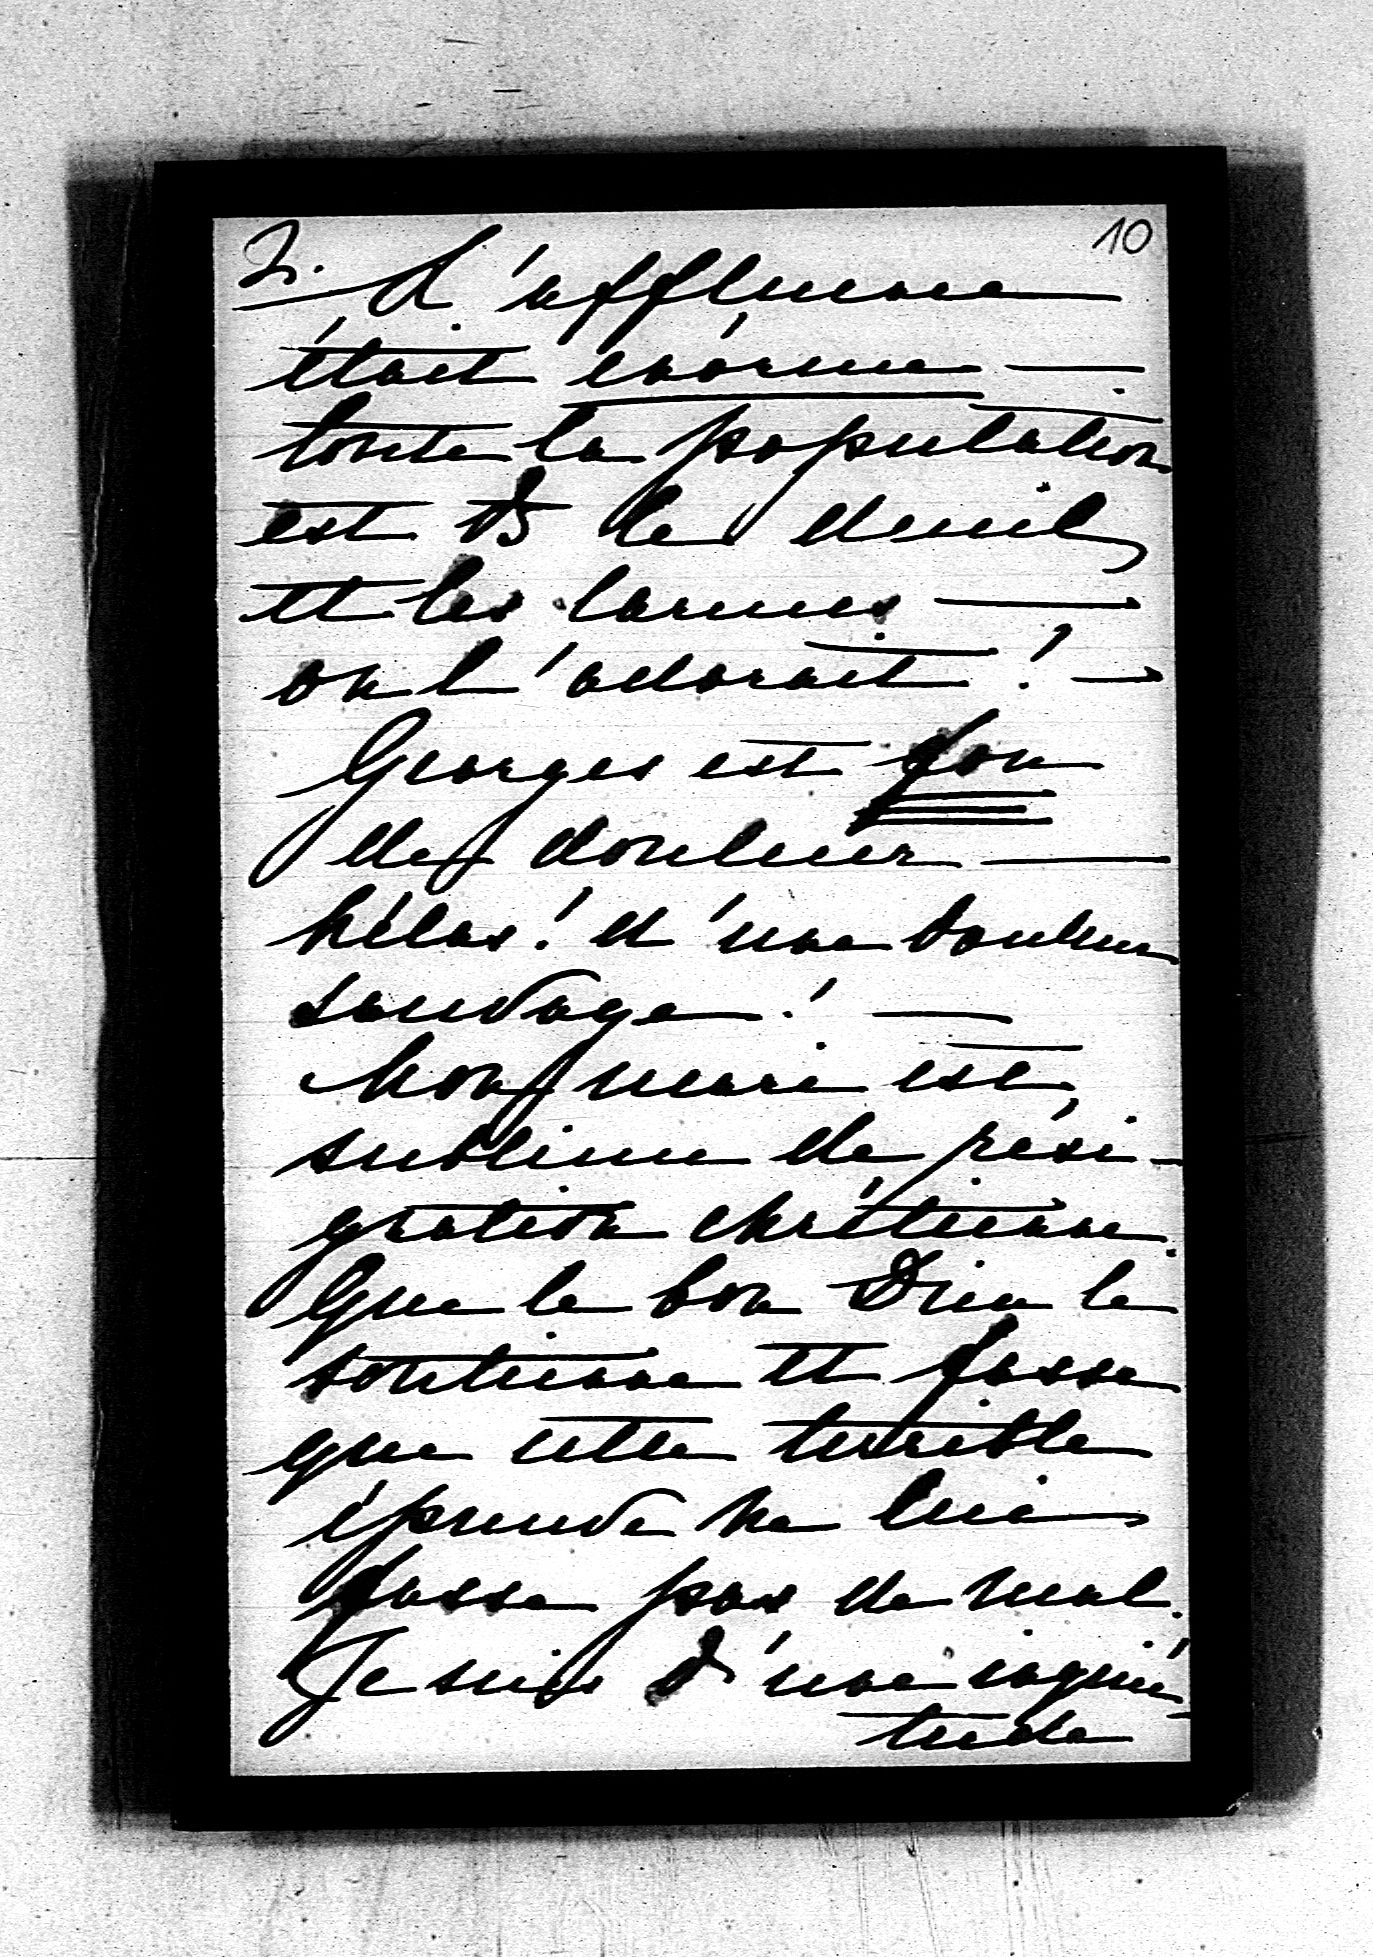 2. 10
L'affluence
était énorme —
toute la population
est ds le deuil
et les larmes —
on l'adorait ! —
Georges est fou
de douleur —
hélas ! d'une douleur
sauvage ! —
Mon mari est
sublime de rési-
gnation chrétienne.
Que le bon Dieu le
soutienne et fasse
que cette terrible
épreuve ne lui
fasse pas de mal.
Je suis d'une inquié-
tude